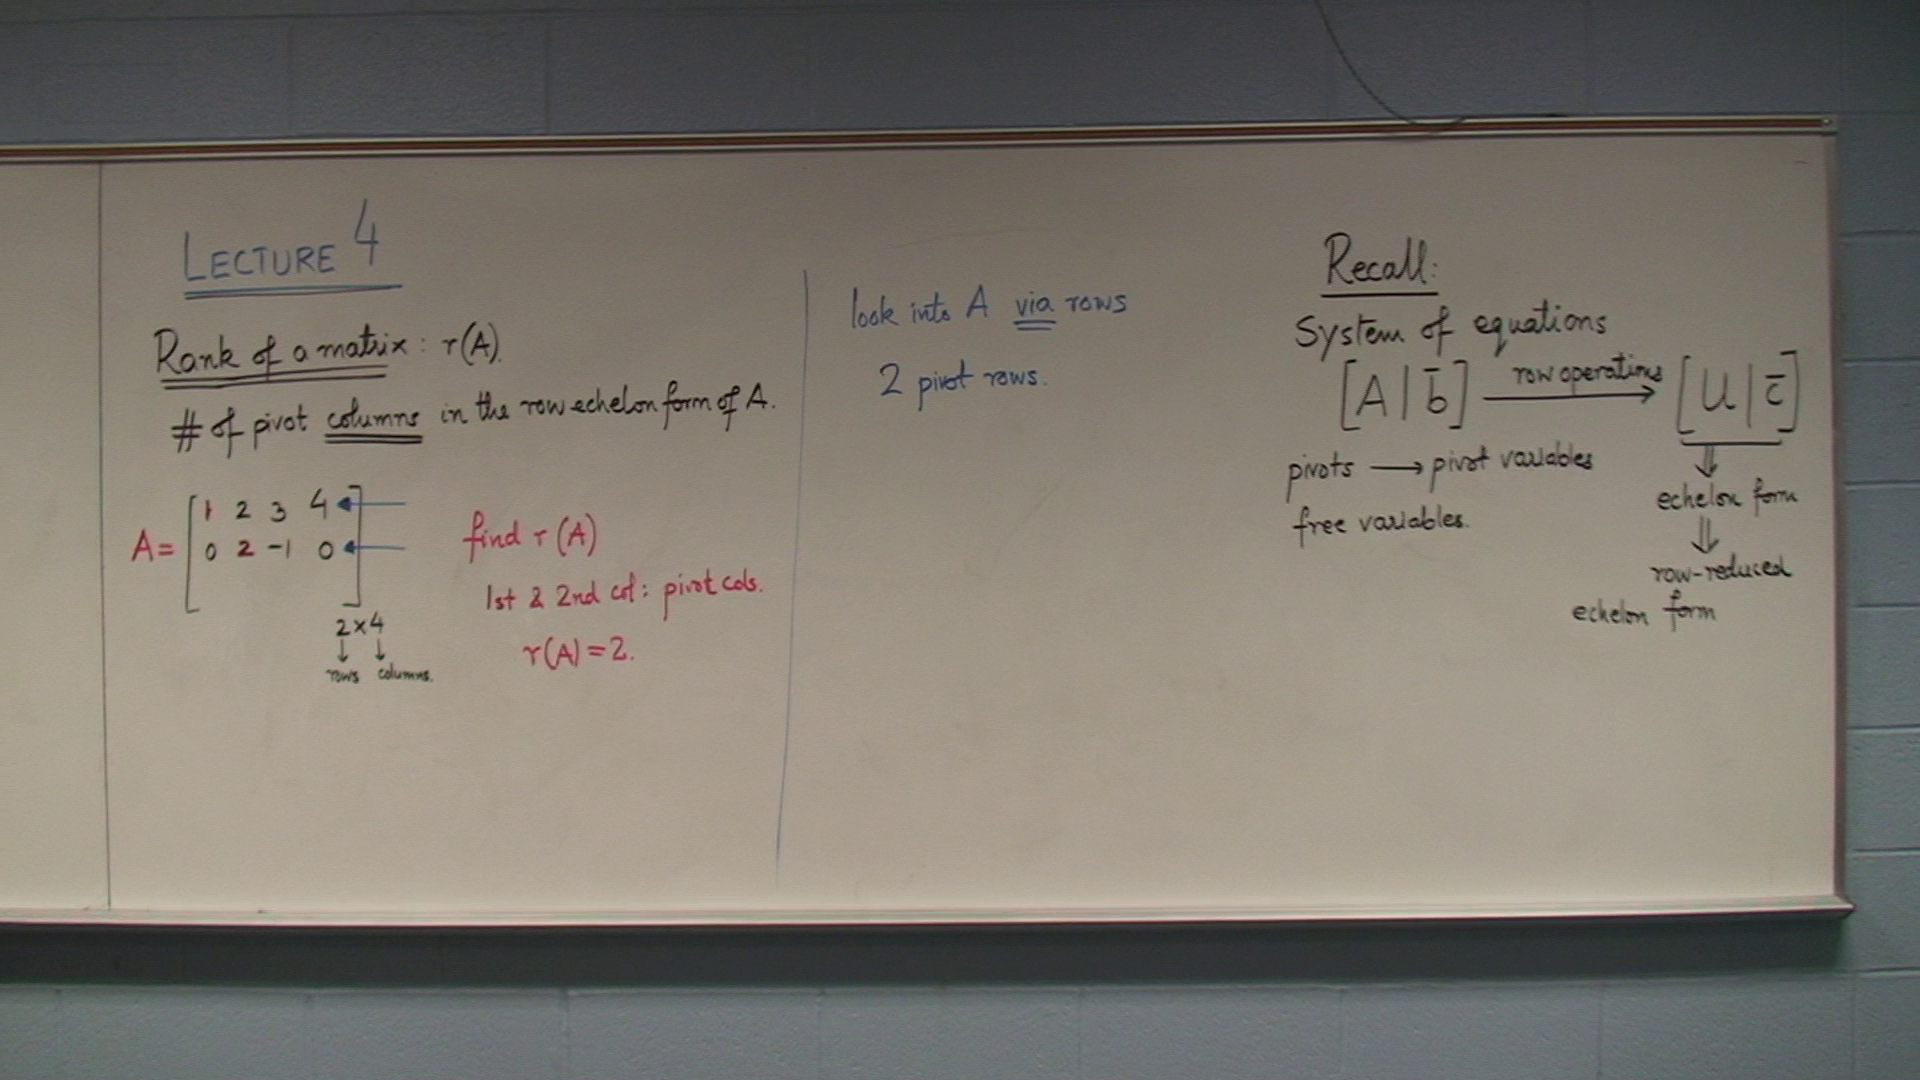 LECTURE 4
Rank of a matrix: r(A).
# of pivot columns in the row echelon form of A.
A = [ 1 2 3 4
0 2 -1 0 ]
2x4
rows columns.
find r(A)
1st & 2nd col: pivot cols.
r(A) = 2.
look into A via rows
2 pivot rows.
Recall:
System of equations
[A | b̄] row operations → [U | c̄]
pivots → pivot variables
free variables.
⇓
echelon form
⇓
row-reduced
echelon form